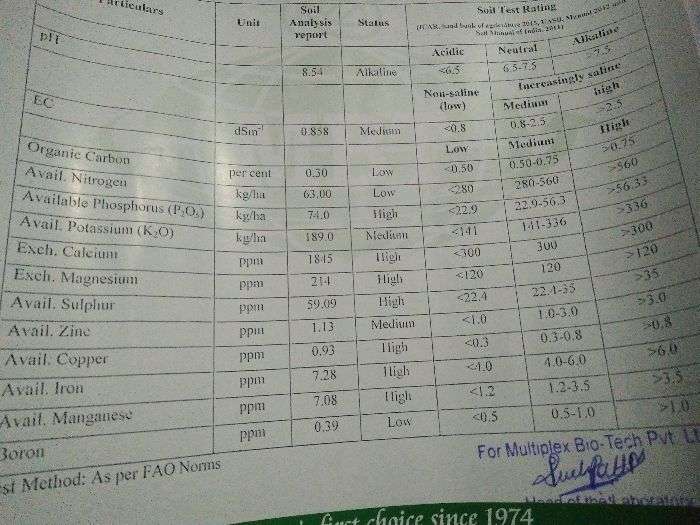 Particulars Unit Soil Analysis report Status Soil Test Rating
(ICAR, hand book of agriculture 2015, UASD, Manual 2012 and
Soil Manual of India, 2011)
Acidic Neutral Alkaline
pH 8.54 Alkaline <6.5 6.5-7.5 >7.5
Non-saline (low) Increasingly saline
Medium high
EC dSm⁻¹ 0.858 Medium <0.8 0.8-2.5 >2.5
Low Medium High
Organic Carbon per cent 0.30 Low <0.50 0.50-0.75 >0.75
Avail. Nitrogen kg/ha 63.00 Low <280 280-560 >560
Available Phosphorus (P₂O₅) kg/ha 74.0 High <22.9 22.9-56.3 >56.33
Avail. Potassium (K₂O) kg/ha 189.0 Medium <141 141-336 >336
Exch. Calcium ppm 1845 High <300 300 >300
Exch. Magnesium ppm 214 High <120 120 >120
Avail. Sulphur ppm 59.09 High <22.4 22.4-35 >35
Avail. Zinc ppm 1.13 Medium <1.0 1.0-3.0 >3.0
Avail. Copper ppm 0.93 High <0.3 0.3-0.8 >0.8
Avail. Iron ppm 7.28 High <4.0 4.0-6.0 >6.0
Avail. Manganese ppm 7.08 High <1.2 1.2-3.5 >3.5
Boron ppm 0.39 Low <0.5 0.5-1.0 >1.0
est Method: As per FAO Norms
For Multiplex Bio-Tech Pvt. Lt
Head of the Laboratory
first choice since 1974